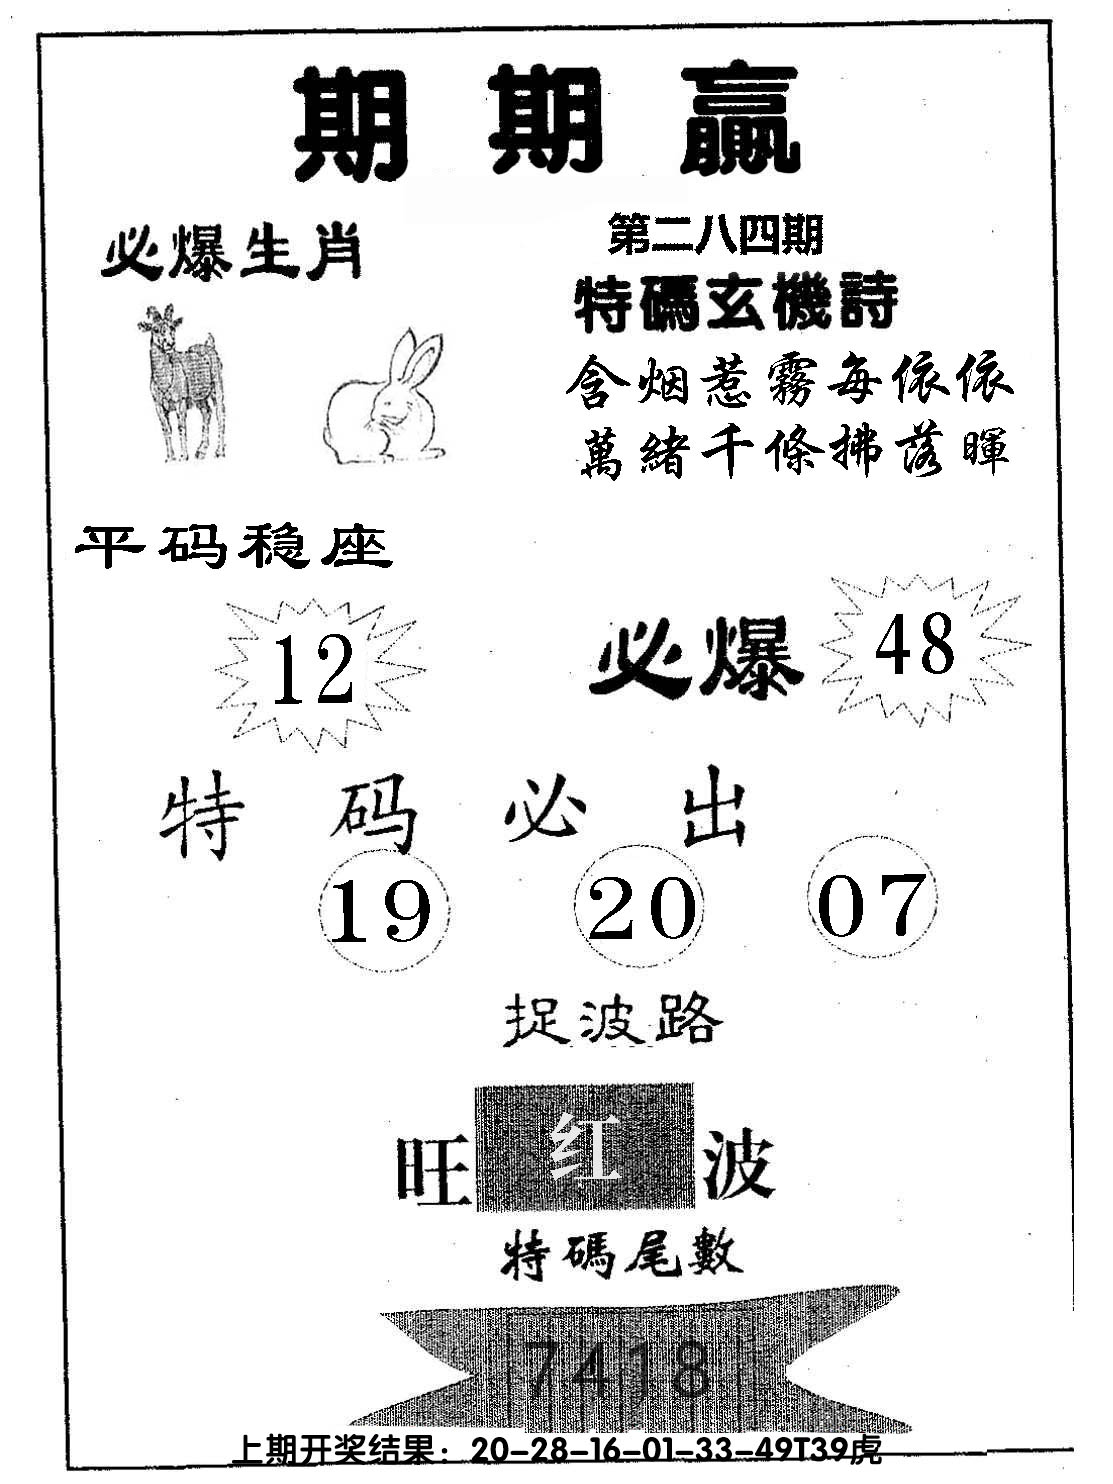 期期赢
必爆生肖
第二八四期
特碼玄機詩
含烟惹霧每依依
萬緒千條拂落暉
平码稳座
12
必爆
48
特码必出
19 20 07
捉波路
旺红波
特碼尾數
7418
上期开奖结果：20-28-16-01-33-49T39虎